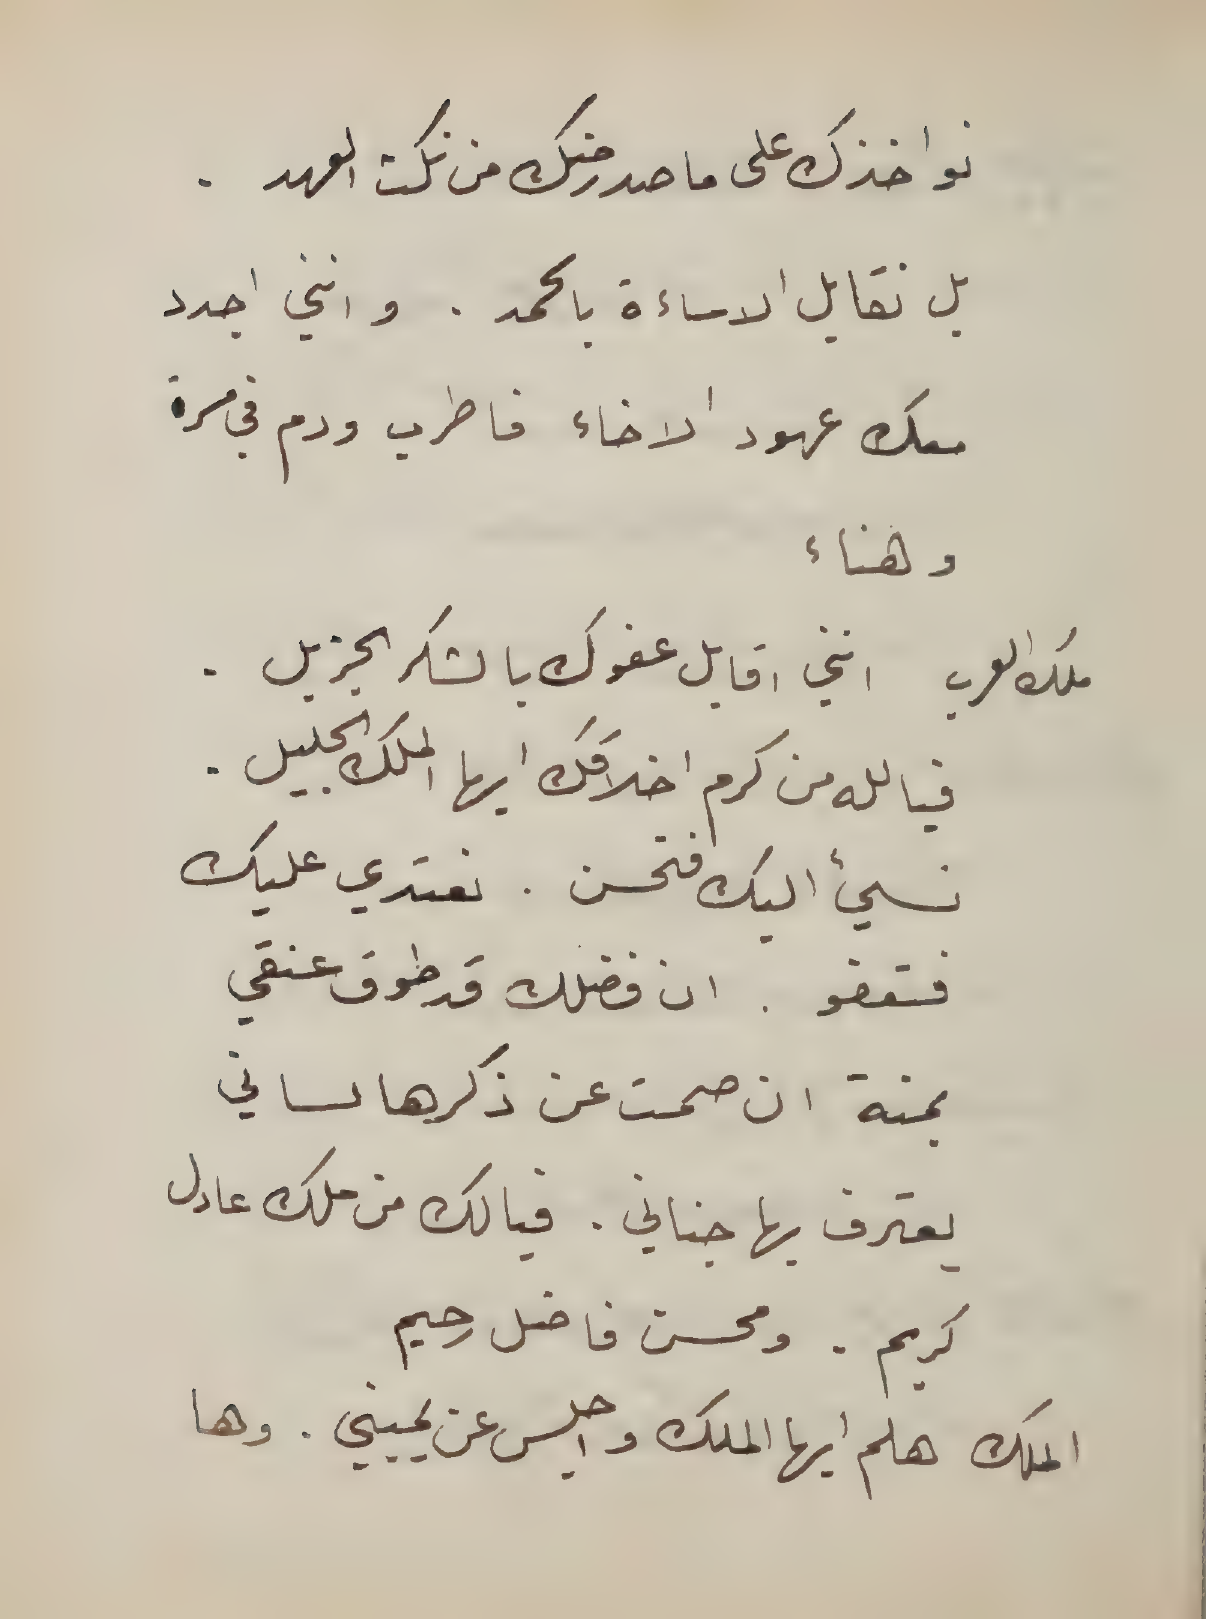 نواخذك على ما صدر منك من نكث العهد .
بل نقابل الاساءة بالحمد . وانني اجدد
معك عهود الاخاء فاطرب ودم في مسرة
وهناء
ملك العرب انني اقابل عفوك بالشكر الجزيل .
فيالله من كرم اخلاقك ايها الملك الجليل .
نسيئ اليك فتحسن . نعتدي عليك
فتعفو . ان فضلك قد طوق عنقي
بمنة ان صمت عن ذكرها لساني
يعترف بها جناني . فيالك من ملك عادل
كريم . ومحسن فاضل رحيم
الملك هلم ايها الملك واجلس عن يميني . وها